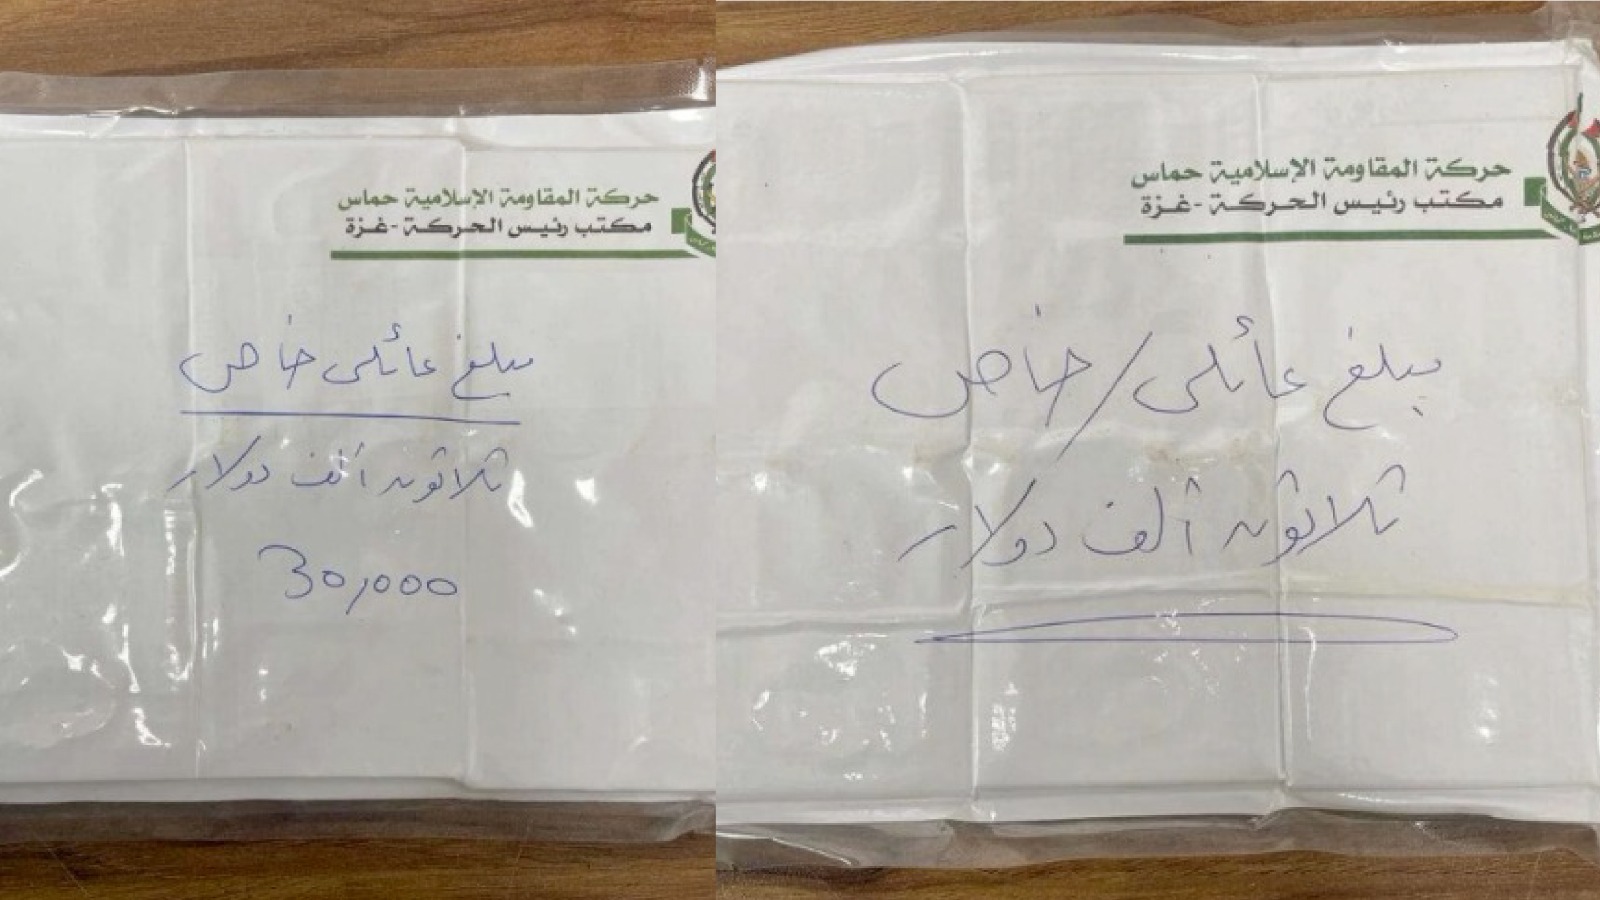 حركة المقاومة الإسلامية حماس
مكتب رئيس الحركة - غزة
مبلغ عائلي خاص
ثلاثون ألف دولار
30,000
حركة المقاومة الإسلامية حماس
مكتب رئيس الحركة - غزة
مبلغ عائلي / خاص
ثلاثون ألف دولار